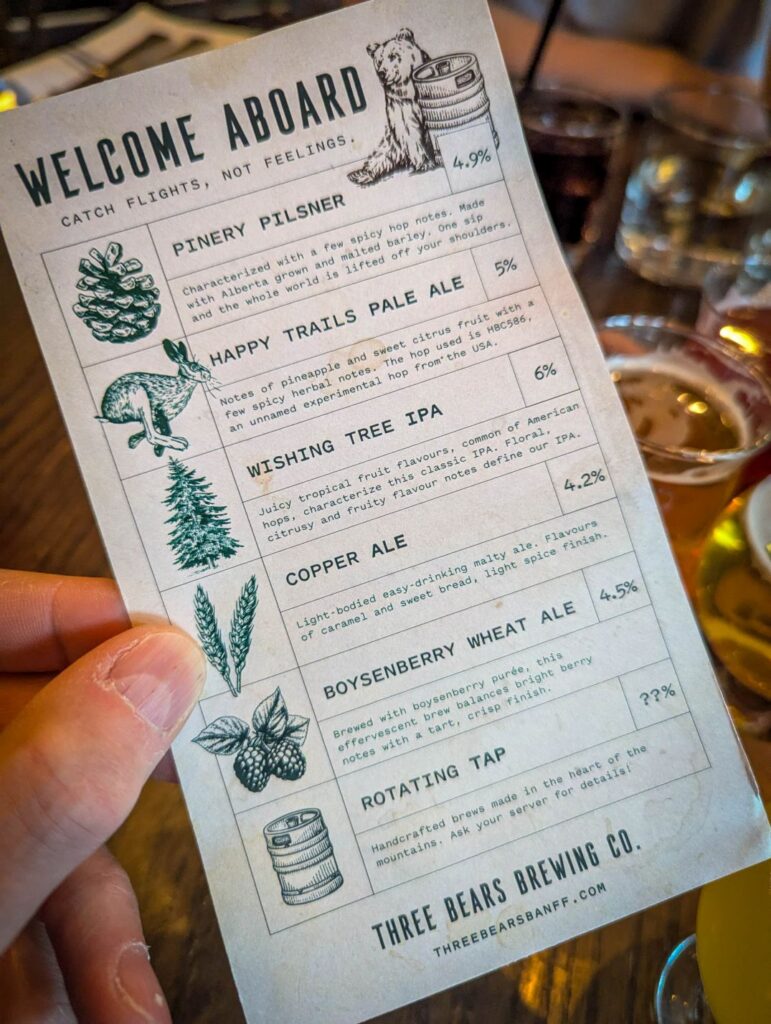 WELCOME ABOARD
CATCH FLIGHTS, NOT FEELINGS.
PINERY PILSNER
4.9%
Characterized with a few spicy hop notes. Made
with Alberta grown and malted barley. One sip
and the whole world is lifted off your shoulders.
HAPPY TRAILS PALE ALE
5%
Notes of pineapple and sweet citrus fruit with a
few spicy herbal notes. The hop used is HBC586,
an unnamed experimental hop from the USA.
WISHING TREE IPA
6%
Juicy tropical fruit flavours, common of American
hops, characterize this classic IPA. Floral,
citrusy and fruity flavour notes define our IPA.
COPPER ALE
4.2%
Light-bodied easy-drinking malty ale. Flavours
of caramel and sweet bread, light spice finish.
BOYSENBERRY WHEAT ALE
4.5%
Brewed with boysenberry purée, this
effervescent brew balances bright berry
notes with a tart, crisp finish.
ROTATING TAP
??%
Handcrafted brews made in the heart of the
mountains. Ask your server for details!
THREE BEARS BREWING CO.
THREEBEARSBANFF.COM